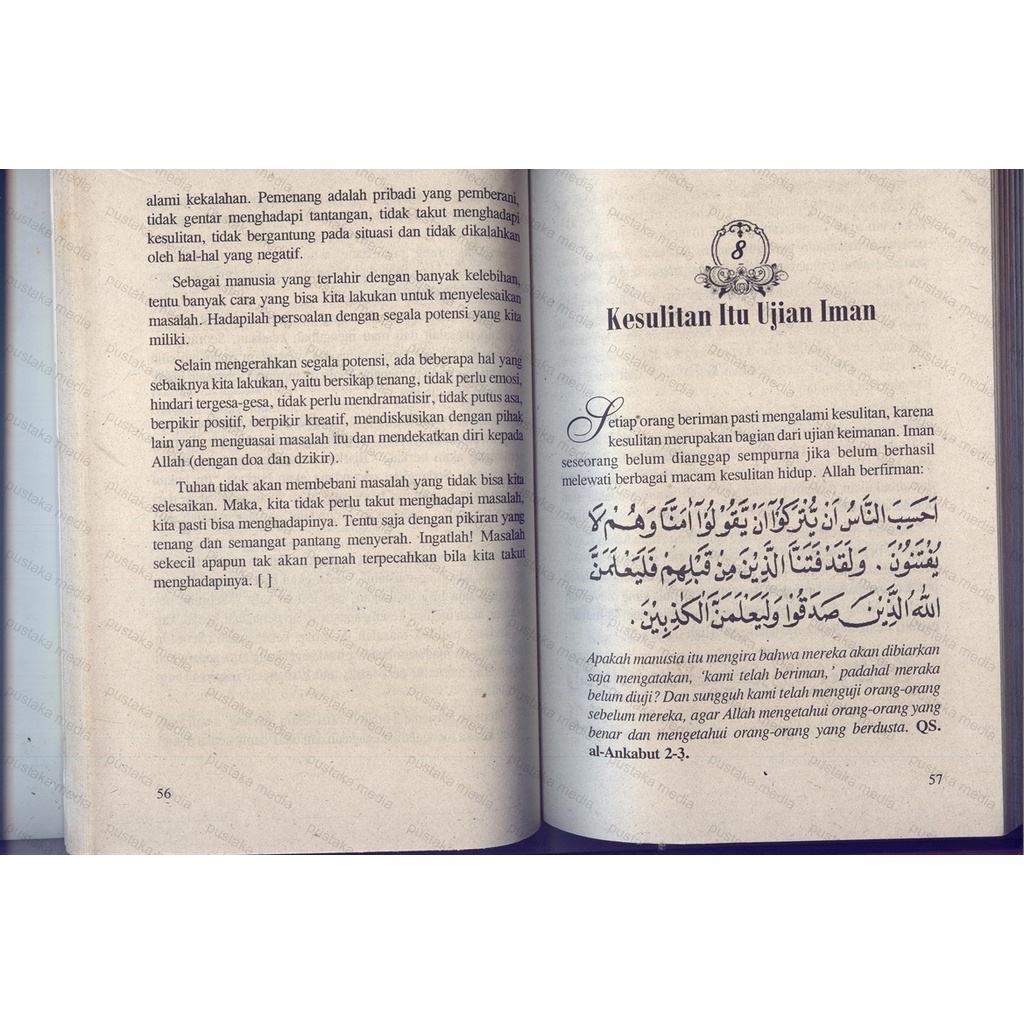 alami kekalahan. Pemenang adalah pribadi yang pemberani,
tidak gentar menghadapi tantangan, tidak takut menghadapi
kesulitan, tidak bergantung pada situasi dan tidak dikalahkan
oleh hal-hal yang negatif.
Sebagai manusia yang terlahir dengan banyak kelebihan,
tentu banyak cara yang bisa kita lakukan untuk menyelesaikan
masalah. Hadapilah persoalan dengan segala potensi yang kita
miliki.
Selain mengerahkan segala potensi, ada beberapa hal yang
sebaiknya kita lakukan, yaitu bersikap tenang, tidak perlu emosi,
hindari tergesa-gesa, tidak perlu mendramatisir, tidak putus asa,
berpikir positif, berpikir kreatif, mendiskusikan dengan pihak
lain yang menguasai masalah itu dan mendekatkan diri kepada
Allah (dengan doa dan dzikir).
Tuhan tidak akan membebani masalah yang tidak bisa kita
selesaikan. Maka, kita tidak perlu takut menghadapi masalah,
kita pasti bisa menghadapinya. Tentu saja dengan pikiran yang
tenang dan semangat pantang menyerah. Ingatlah! Masalah
sekecil apapun tak akan pernah terpecahkan bila kita takut
menghadapinya. [ ]
56
8
Kesulitan Itu Ujian Iman
Setiap orang beriman pasti mengalami kesulitan, karena
kesulitan merupakan bagian dari ujian keimanan. Iman
seseorang belum dianggap sempurna jika belum berhasil
melewati berbagai macam kesulitan hidup. Allah berfirman:
اَحَسِبَ النَّاسُ اَنْ يُّتْرَكُوْٓا اَنْ يَّقُوْلُوْٓا اٰمَنَّا وَهُمْ لَا
يُفْتَنُوْنَ . وَلَقَدْ فَتَنَّا الَّذِيْنَ مِنْ قَبْلِهِمْ فَلَيَعْلَمَنَّ
اللّٰهُ الَّذِيْنَ صَدَقُوْا وَلَيَعْلَمَنَّ الْكٰذِبِيْنَ .
Apakah manusia itu mengira bahwa mereka akan dibiarkan
saja mengatakan, ‘kami telah beriman,’ padahal meraka
belum diuji? Dan sungguh kami telah menguji orang-orang
sebelum mereka, agar Allah mengetahui orang-orang yang
benar dan mengetahui orang-orang yang berdusta. QS.
al-Ankabut 2-3.
57
pustaka media